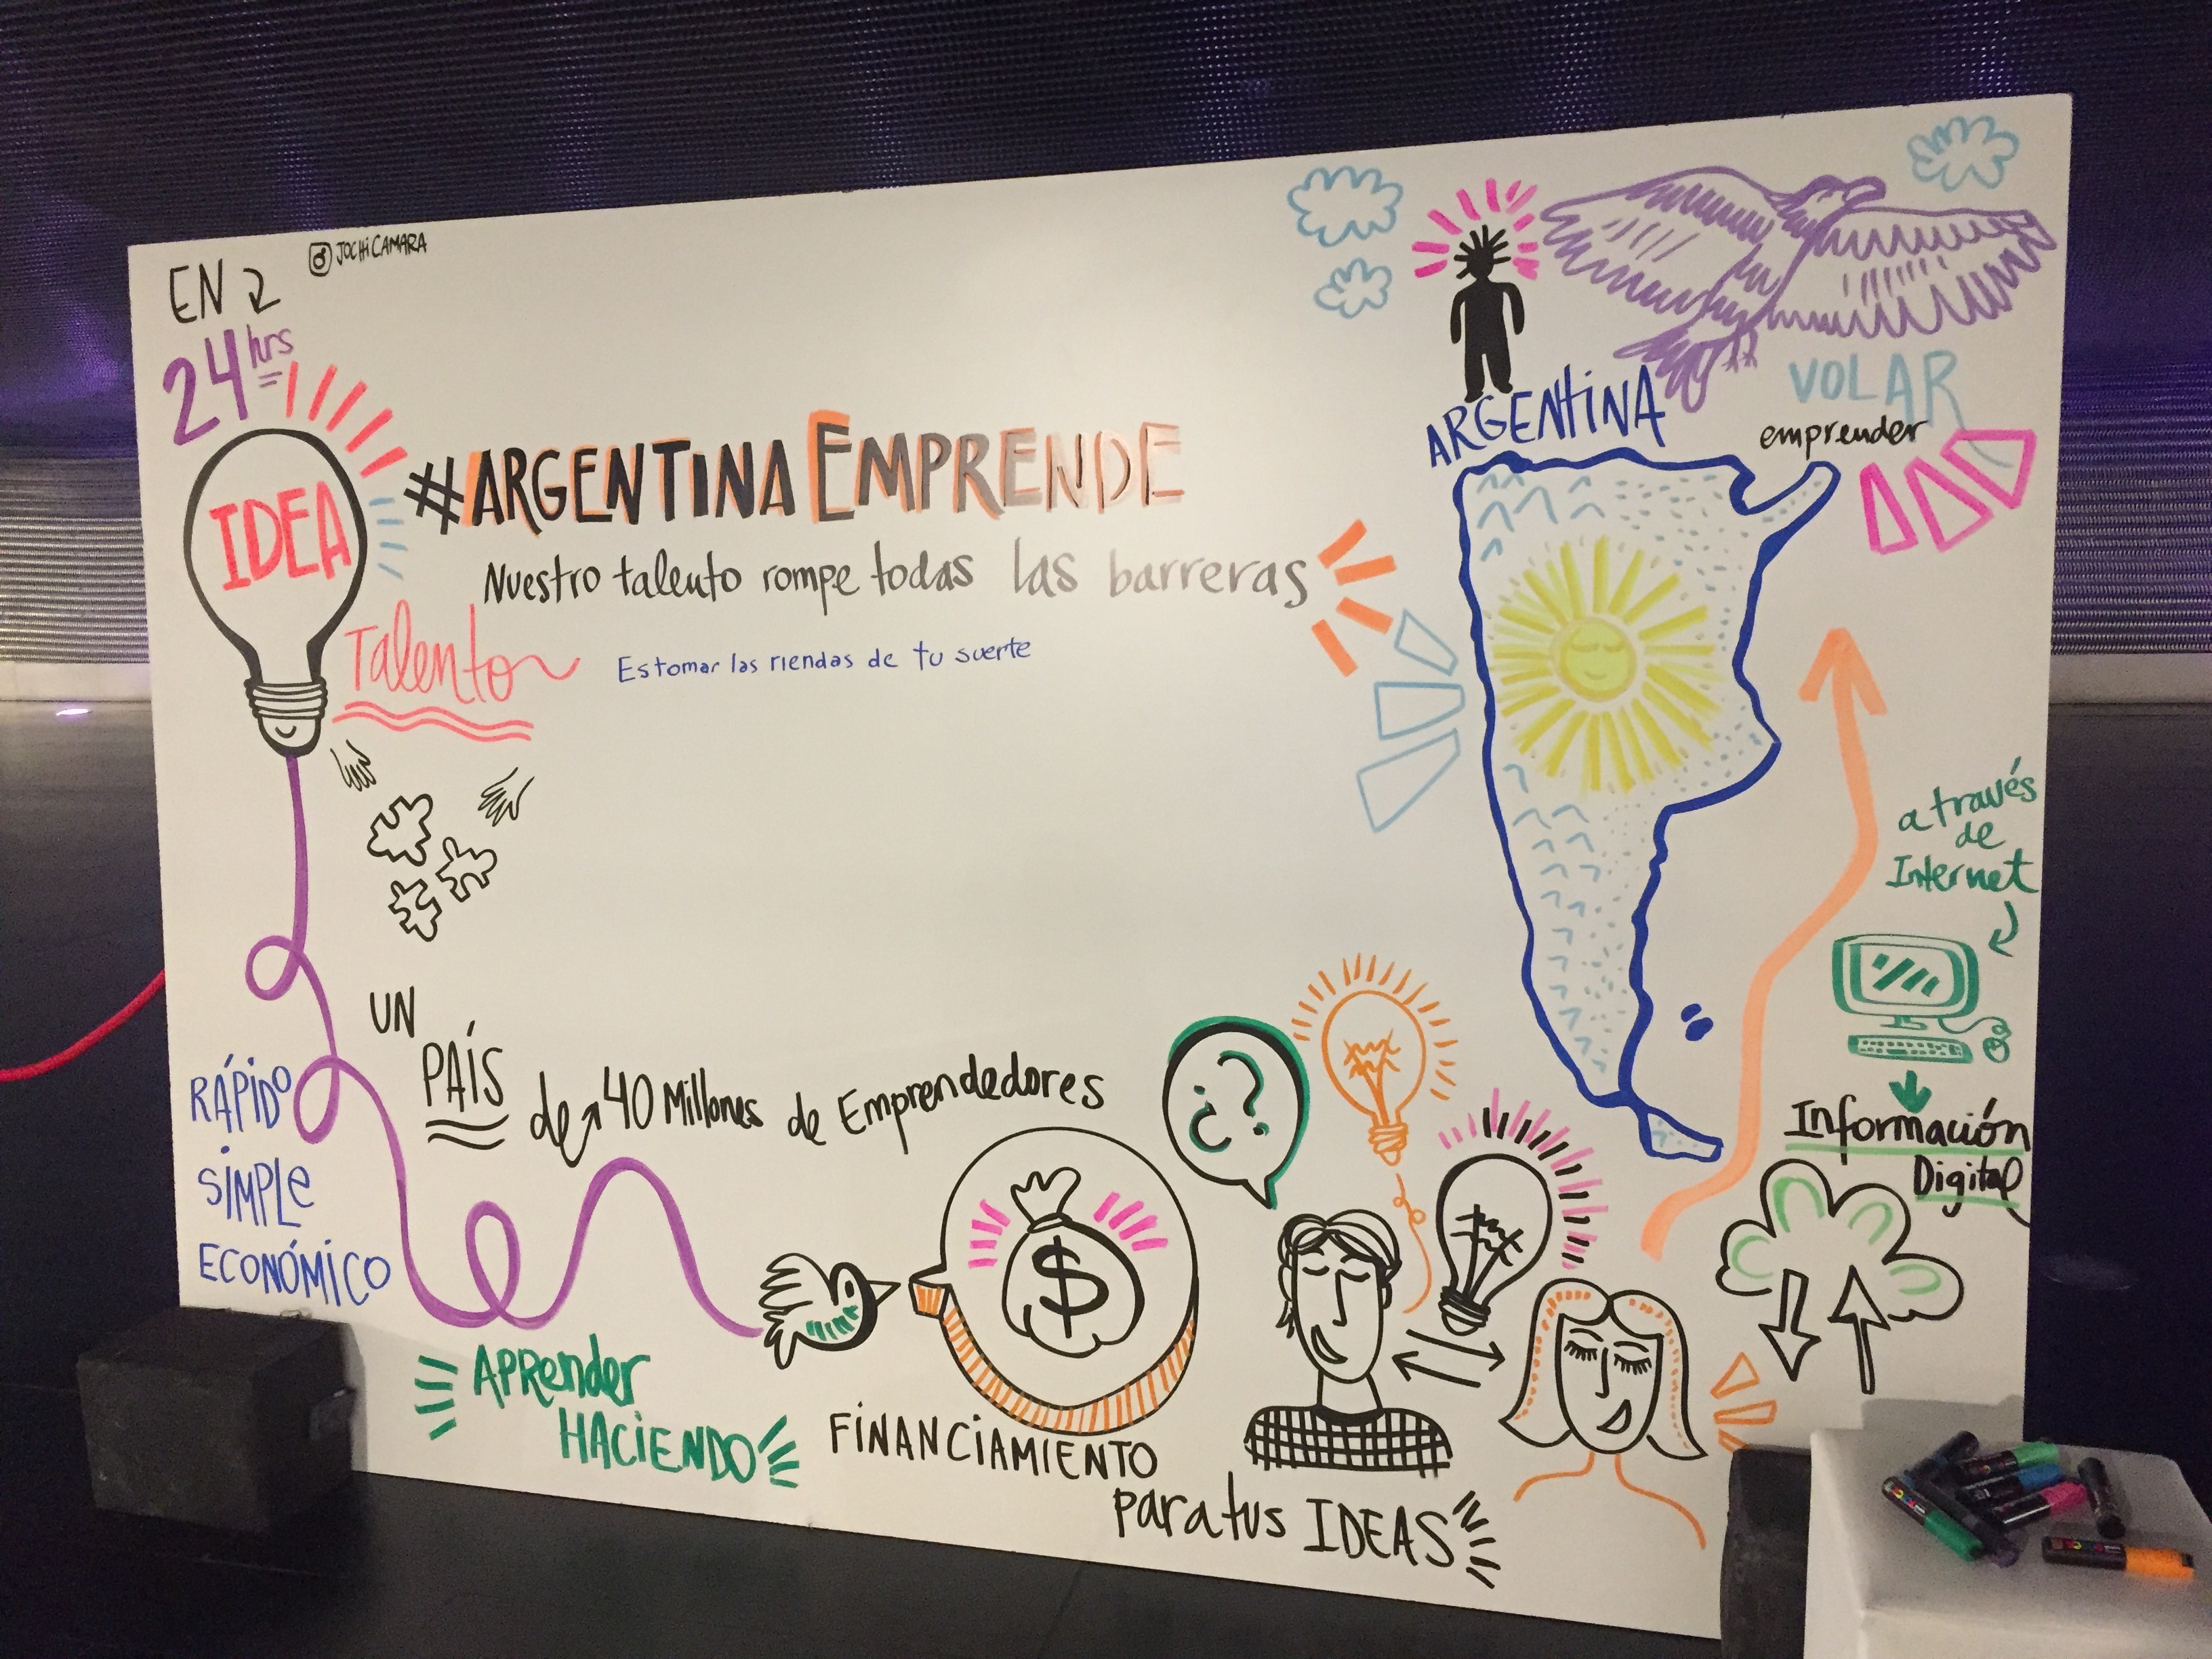 EN
24 hrs
JOCHiCAMARA
IDEA
#ARGENTINA EMPRENDE
Nuestro talento rompe todas las barreras
Talento
Es tomar las riendas de tu suerte
ARGENTINA
VOLAR
emprender
a través
de
Internet
Información
Digital
UN
PAÍS
de 40 Millones de Emprendedores
RÁPIDO
SIMPLE
ECONÓMICO
APRender
HACIENDO
$
FINANCIAMIENTO
para tus IDEAS
¿?